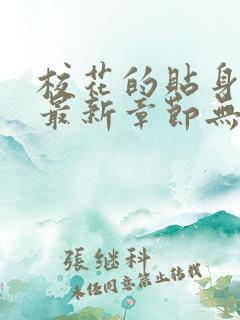 校花的貼身
最新章節無
張继科
未经同意禁止转载